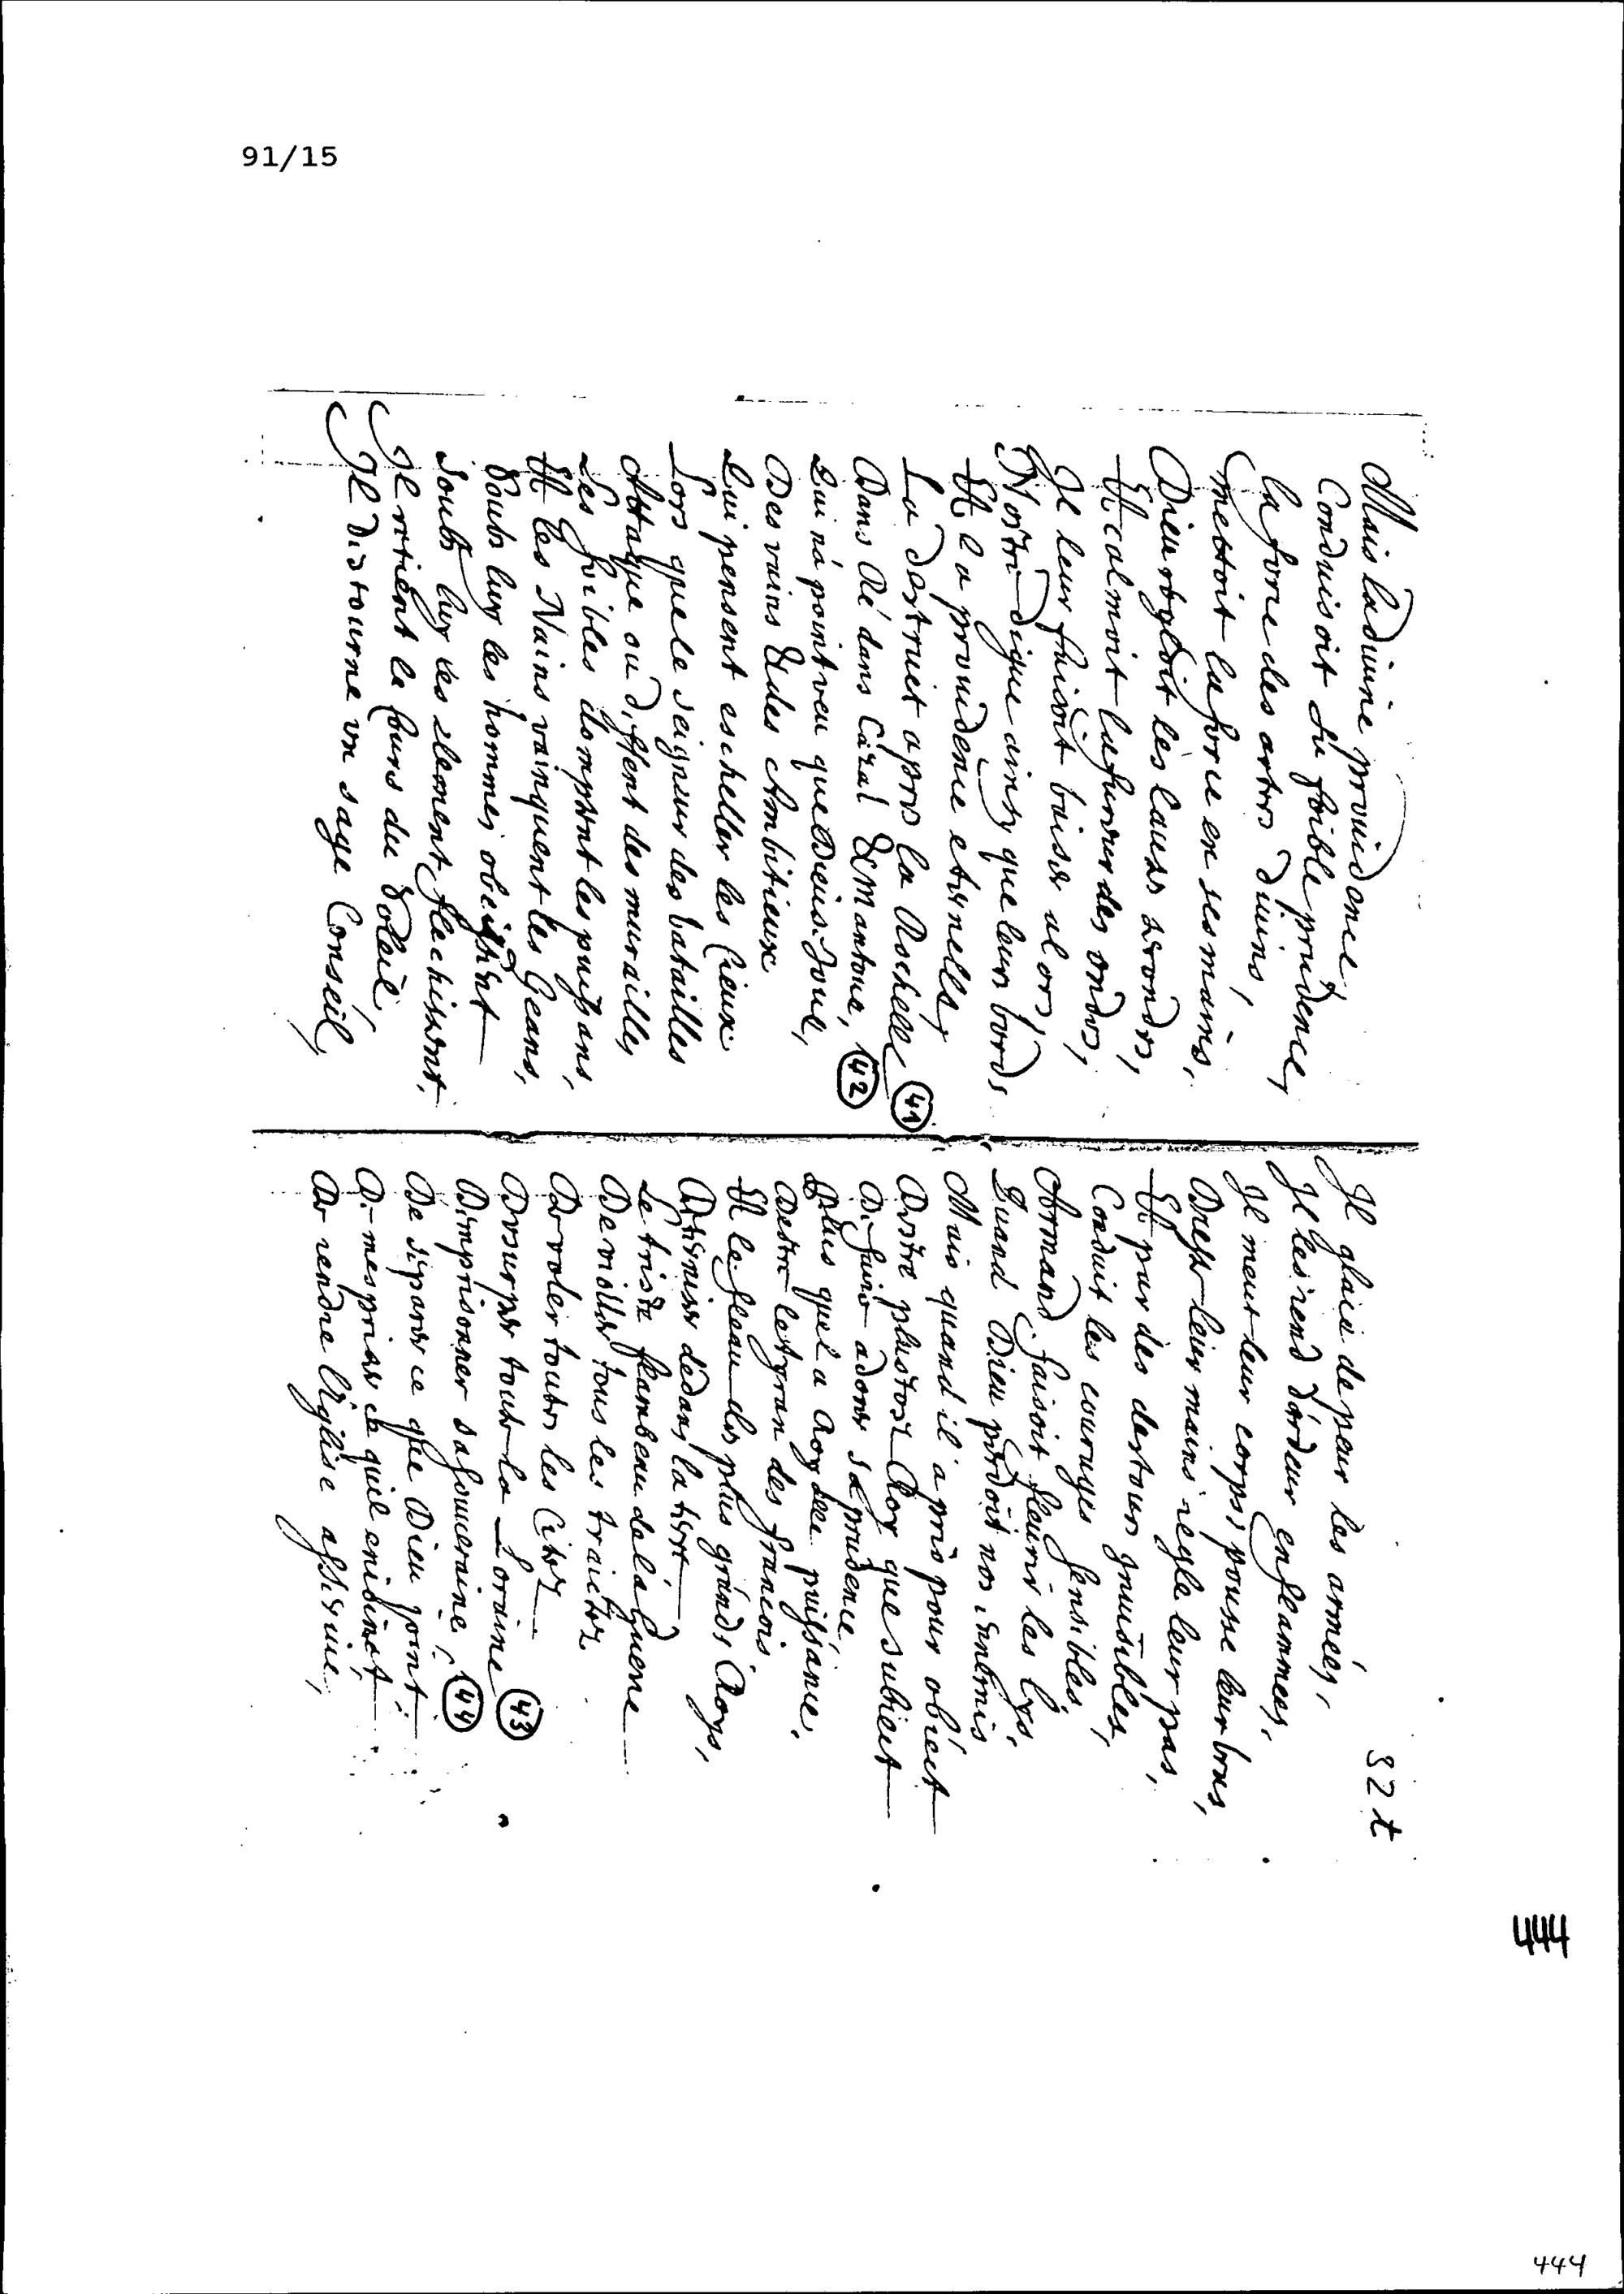 91/15
Mais la diuine prouidence,
Conduisoit du foible prudence,
la force des astres diuins,
mettoit la force en ses mains,
Dieu regloit les eaux
Et calmoit la fureur des ondes,
Je leur faisoit baiser alors,
Nostre digue ainsy que leurs bords
Et la prouidence eternelle,
La destruict apres la Rochelle (41)
Dans Ré dans Cazal & Mantoue, (42)
Qui na point veu que Dieu se Joue,
Des vains & des Ambitieux
Qui pensent escheller les Cieux
Lors que le seigneur des batailles
Attaque ou deffent des murailles
Les foibles domptent les puissans,
Et les Nains vainquent les Geans,
Soubs luy les hommes obeissent
Soubs luy les element flechissent,
Il retient le Cours du Soleil
Il destourne un sage Conseil,
Il glace de peur les armées,
Il les rend d'ardeur enflammees,
Il meut leur corps, pousse leur bras,
Dresse leur mains regle leur pas,
Et par des destours Inuisibles,
Conduit les courages sensibles,
Armand faisoit fleurir les lys,
Quand Dieu perdoit nos
Mais quand il a pris pour obiect
D'estre plustost Roy que subiect
De faire adorer sa prudence
Plus que la Royalle puissance,
Destre le tyran des francois
Et le fleau des plus grands Roys,
D'atiser dedans la terre
Le triste flambeau de la guerre
De violler tous les traictez
De voler toutes les Citez
D'vsurper toute la Loraine (43)
D'imprisonner sa souueraine, (44)
De separer ce que Dieu joint
De mespriser ce quil enioint
De rendre l'Eglise asseruie,
92 t
444
444